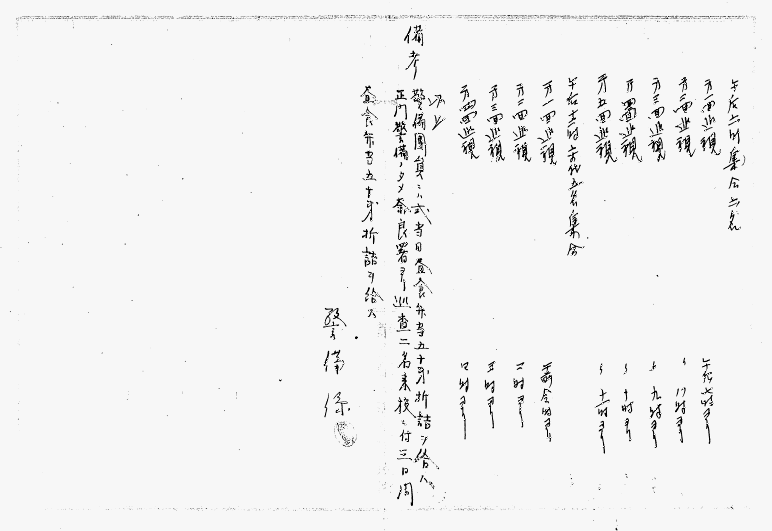 午后六時集合六名
第一回巡視 午后七時ヨリ
第二回巡視 〃 八時ヨリ
第三回巡視 〃 九時ヨリ
第四回巡視 〃 十時ヨリ
第五回巡視 〃 十一時ヨリ
午后十一時交代五名集合
第一回巡視 午前令時ヨリ
第二回巡視 二時ヨリ
第三回巡視 三時ヨリ
第四回巡視 四時ヨリ
以上
備考
警備團員ニハ式当日昼食弁当五十銭折詰ヲ給ス
正門警備ノタメ奈良署ヨリ巡査二名来校ニ付三日間
昼食弁当五十銭折詰ヲ給ス
警備係